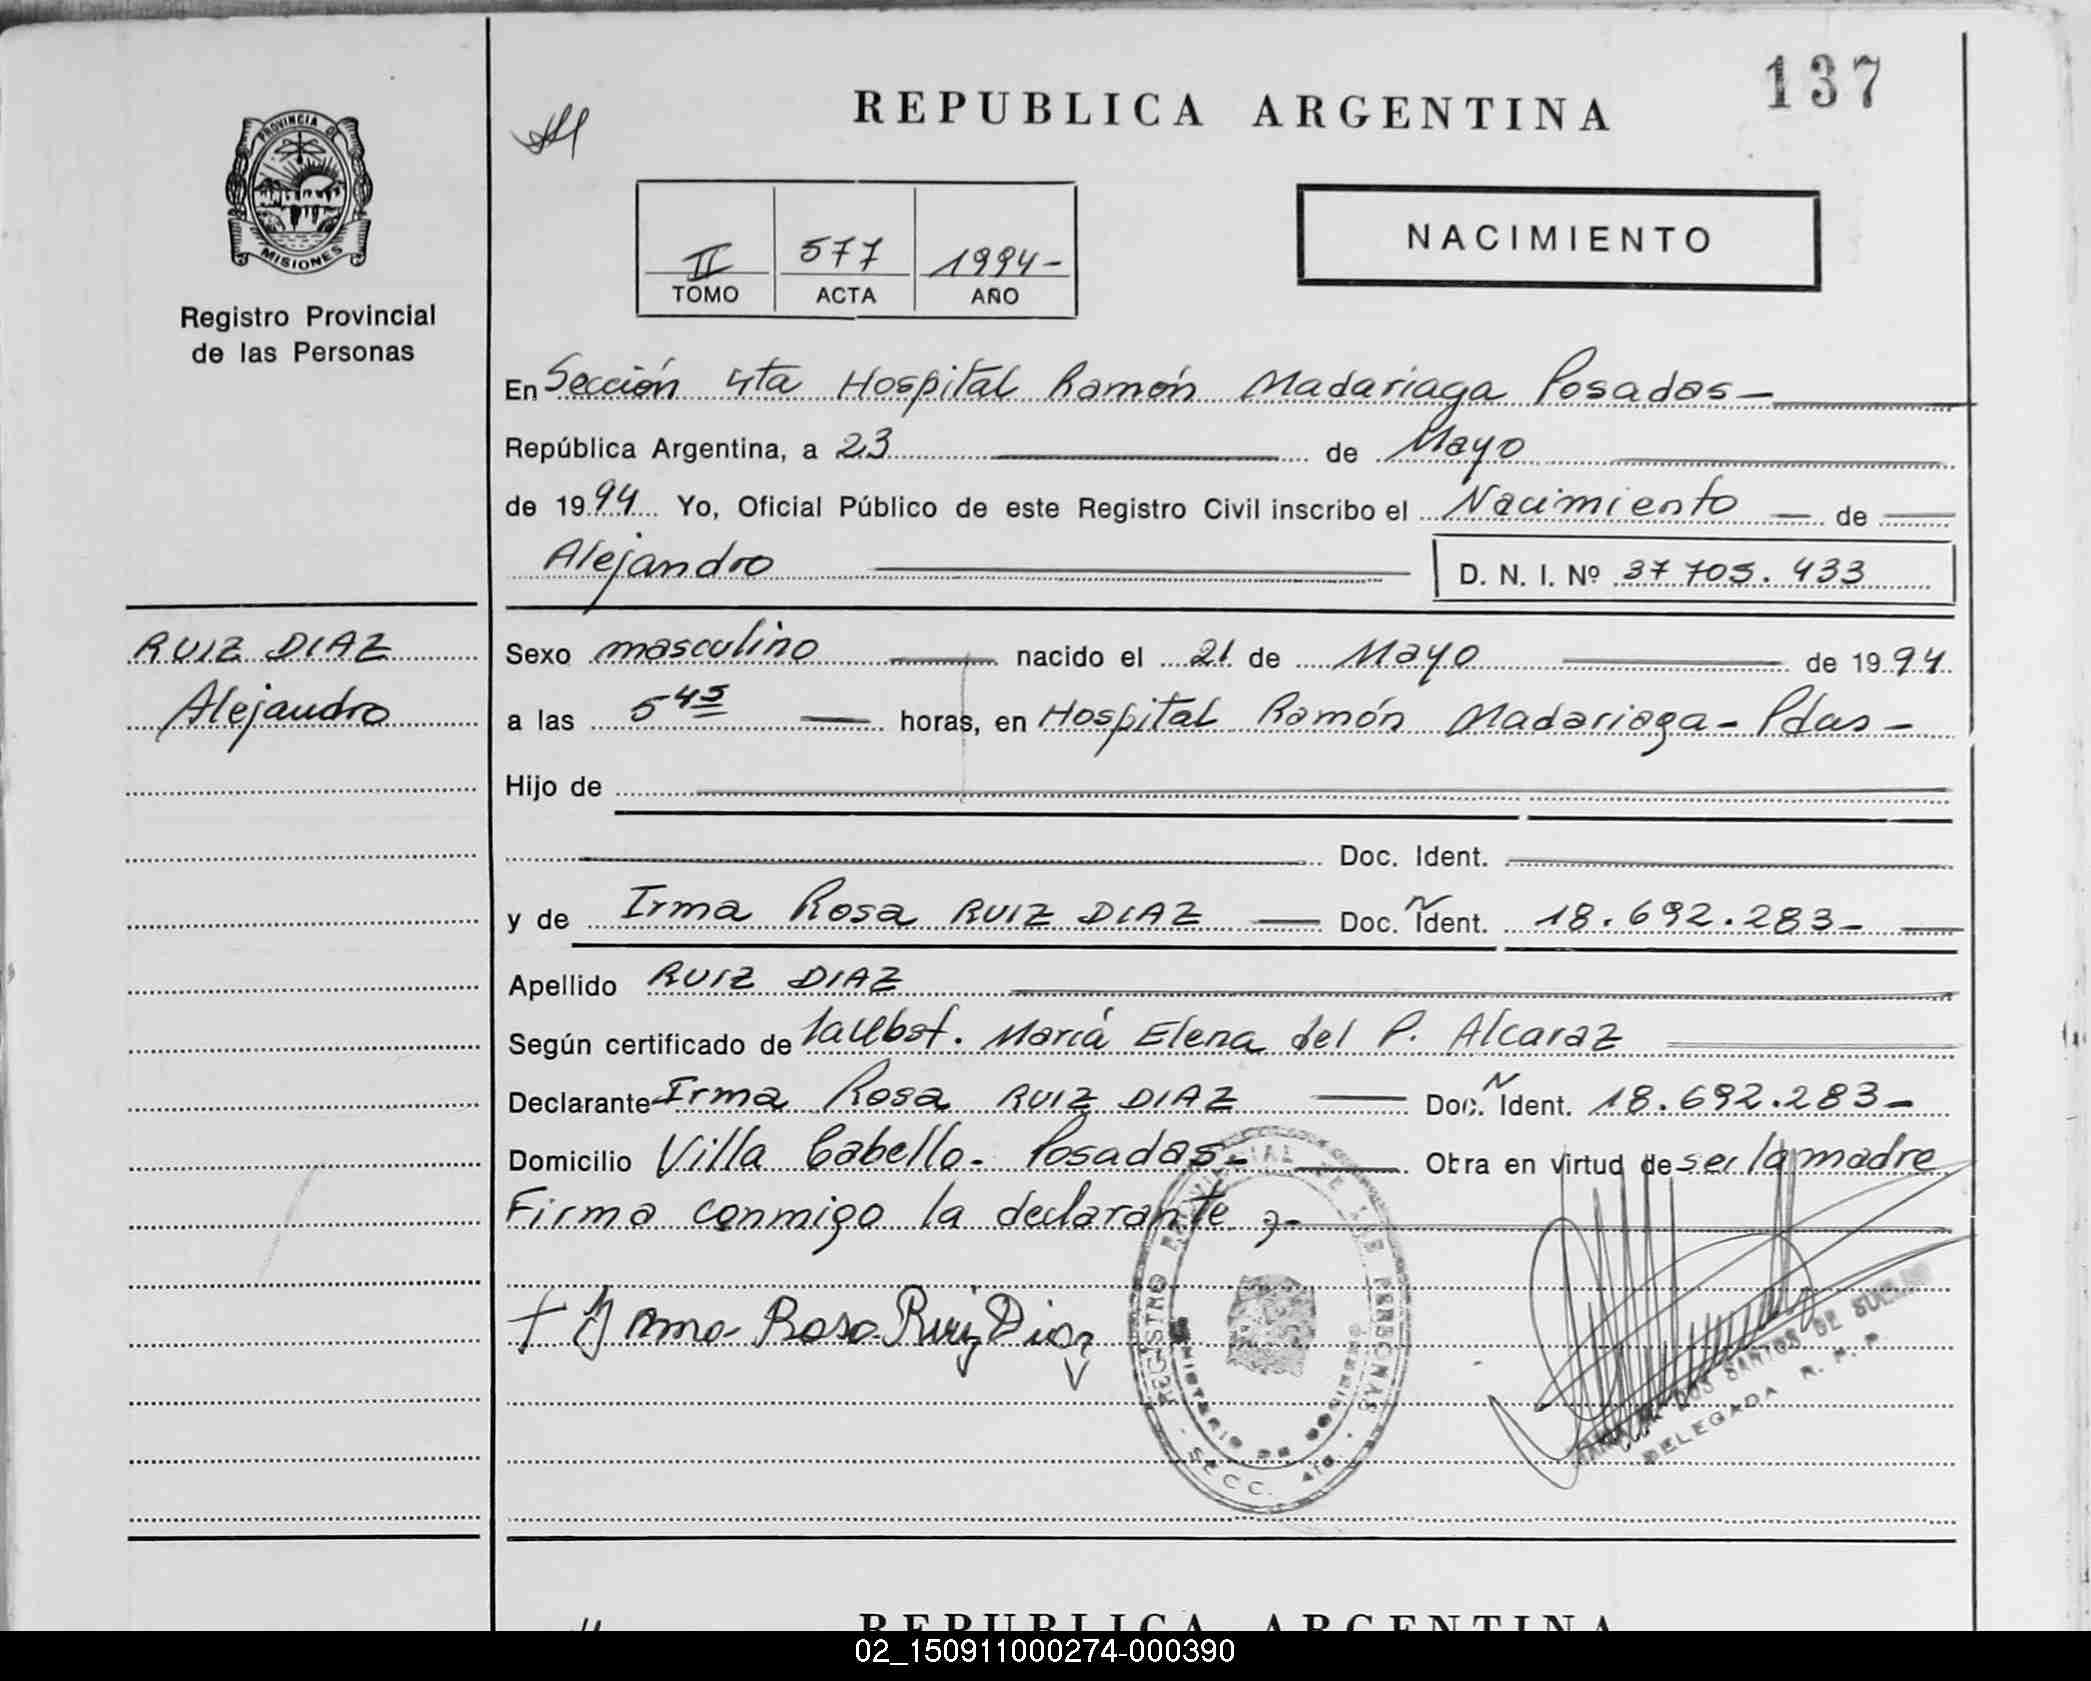 137
REPUBLICA ARGENTINA
PROVINCIA DE
MISIONES
Registro Provincial
de las Personas
II 577 1994-
TOMO ACTA AÑO
NACIMIENTO
En Sección 4ta Hospital Ramón Madariaga Posadas-
República Argentina, a 23 de Mayo
de 1994 Yo, Oficial Público de este Registro Civil inscribo el Nacimiento de
Alejandro D. N. I. Nº 37 703.433
RUIZ DIAZ
Alejandro
Sexo masculino nacido el 21 de Mayo de 1994
a las 5 45 horas, en Hospital Ramón Madariaga - Pdas -
Hijo de
Doc. Ident.
y de Irma Rosa RUIZ DIAZ Doc. Ident. 18.692.283-
Apellido RUIZ DIAZ
Según certificado de María Elena del P. Alcaraz
Declarante Irma Rosa RUIZ DIAZ Doc. Ident. 18.692.283-
Domicilio Villa Cabello. Posadas- Obra en virtud de ser la madre
Firma conmigo la declarante
Irma Rosa Ruiz Diaz
REGISTRO PROVINCIAL DE LAS PERSONAS
MINISTERIO DE GOBIERNO
SECC. 4ta.
DOS SANTOS DE
DELEGADA R. P. P.
REPUBLICA ARGENTINA
02_150911000274-000390